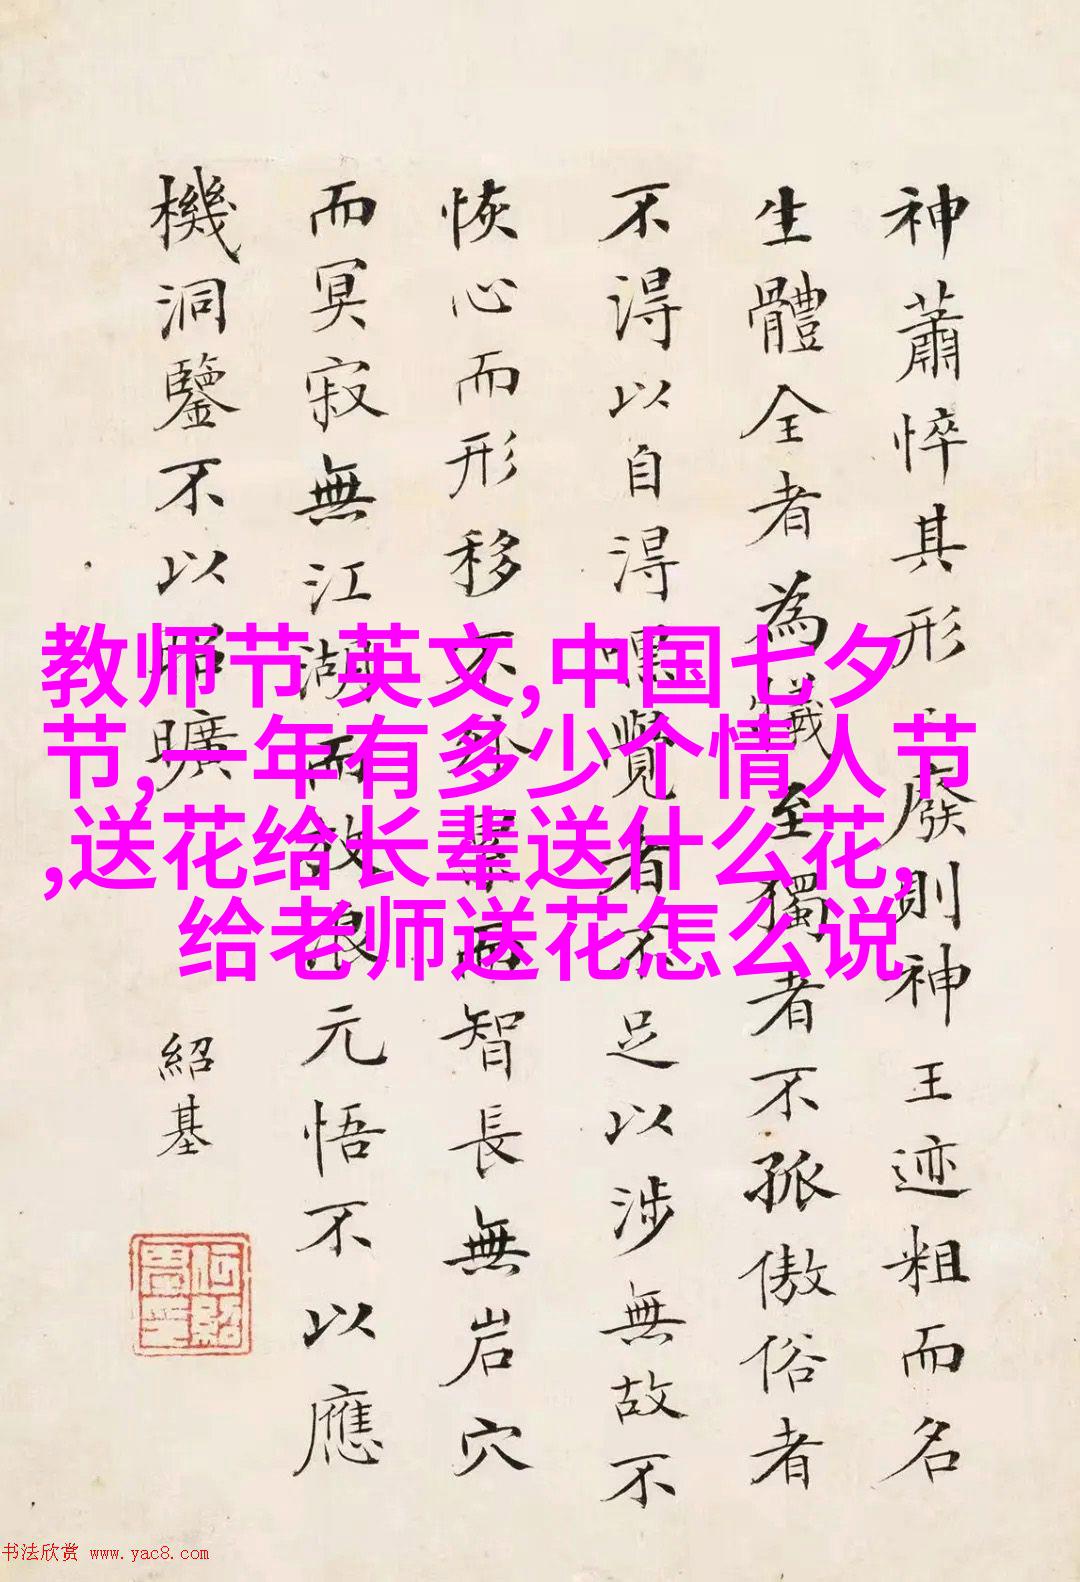 神蕭悴其形廢則神王迹粗而名
生體全者為犧至獨者不孤傲俗者
不得以自得嘿覺者不足以涉無故不
恢心而形移不智長無岩穴
而冥寂無江湖而放浪元悟不以應
機洞鑒不以昭曠
紹基
教师节 英文,中国七夕
节,一年有多少个情人节
,送花给长辈送什么花,
给老师送花怎么说
书法欣赏 www.yac8.com